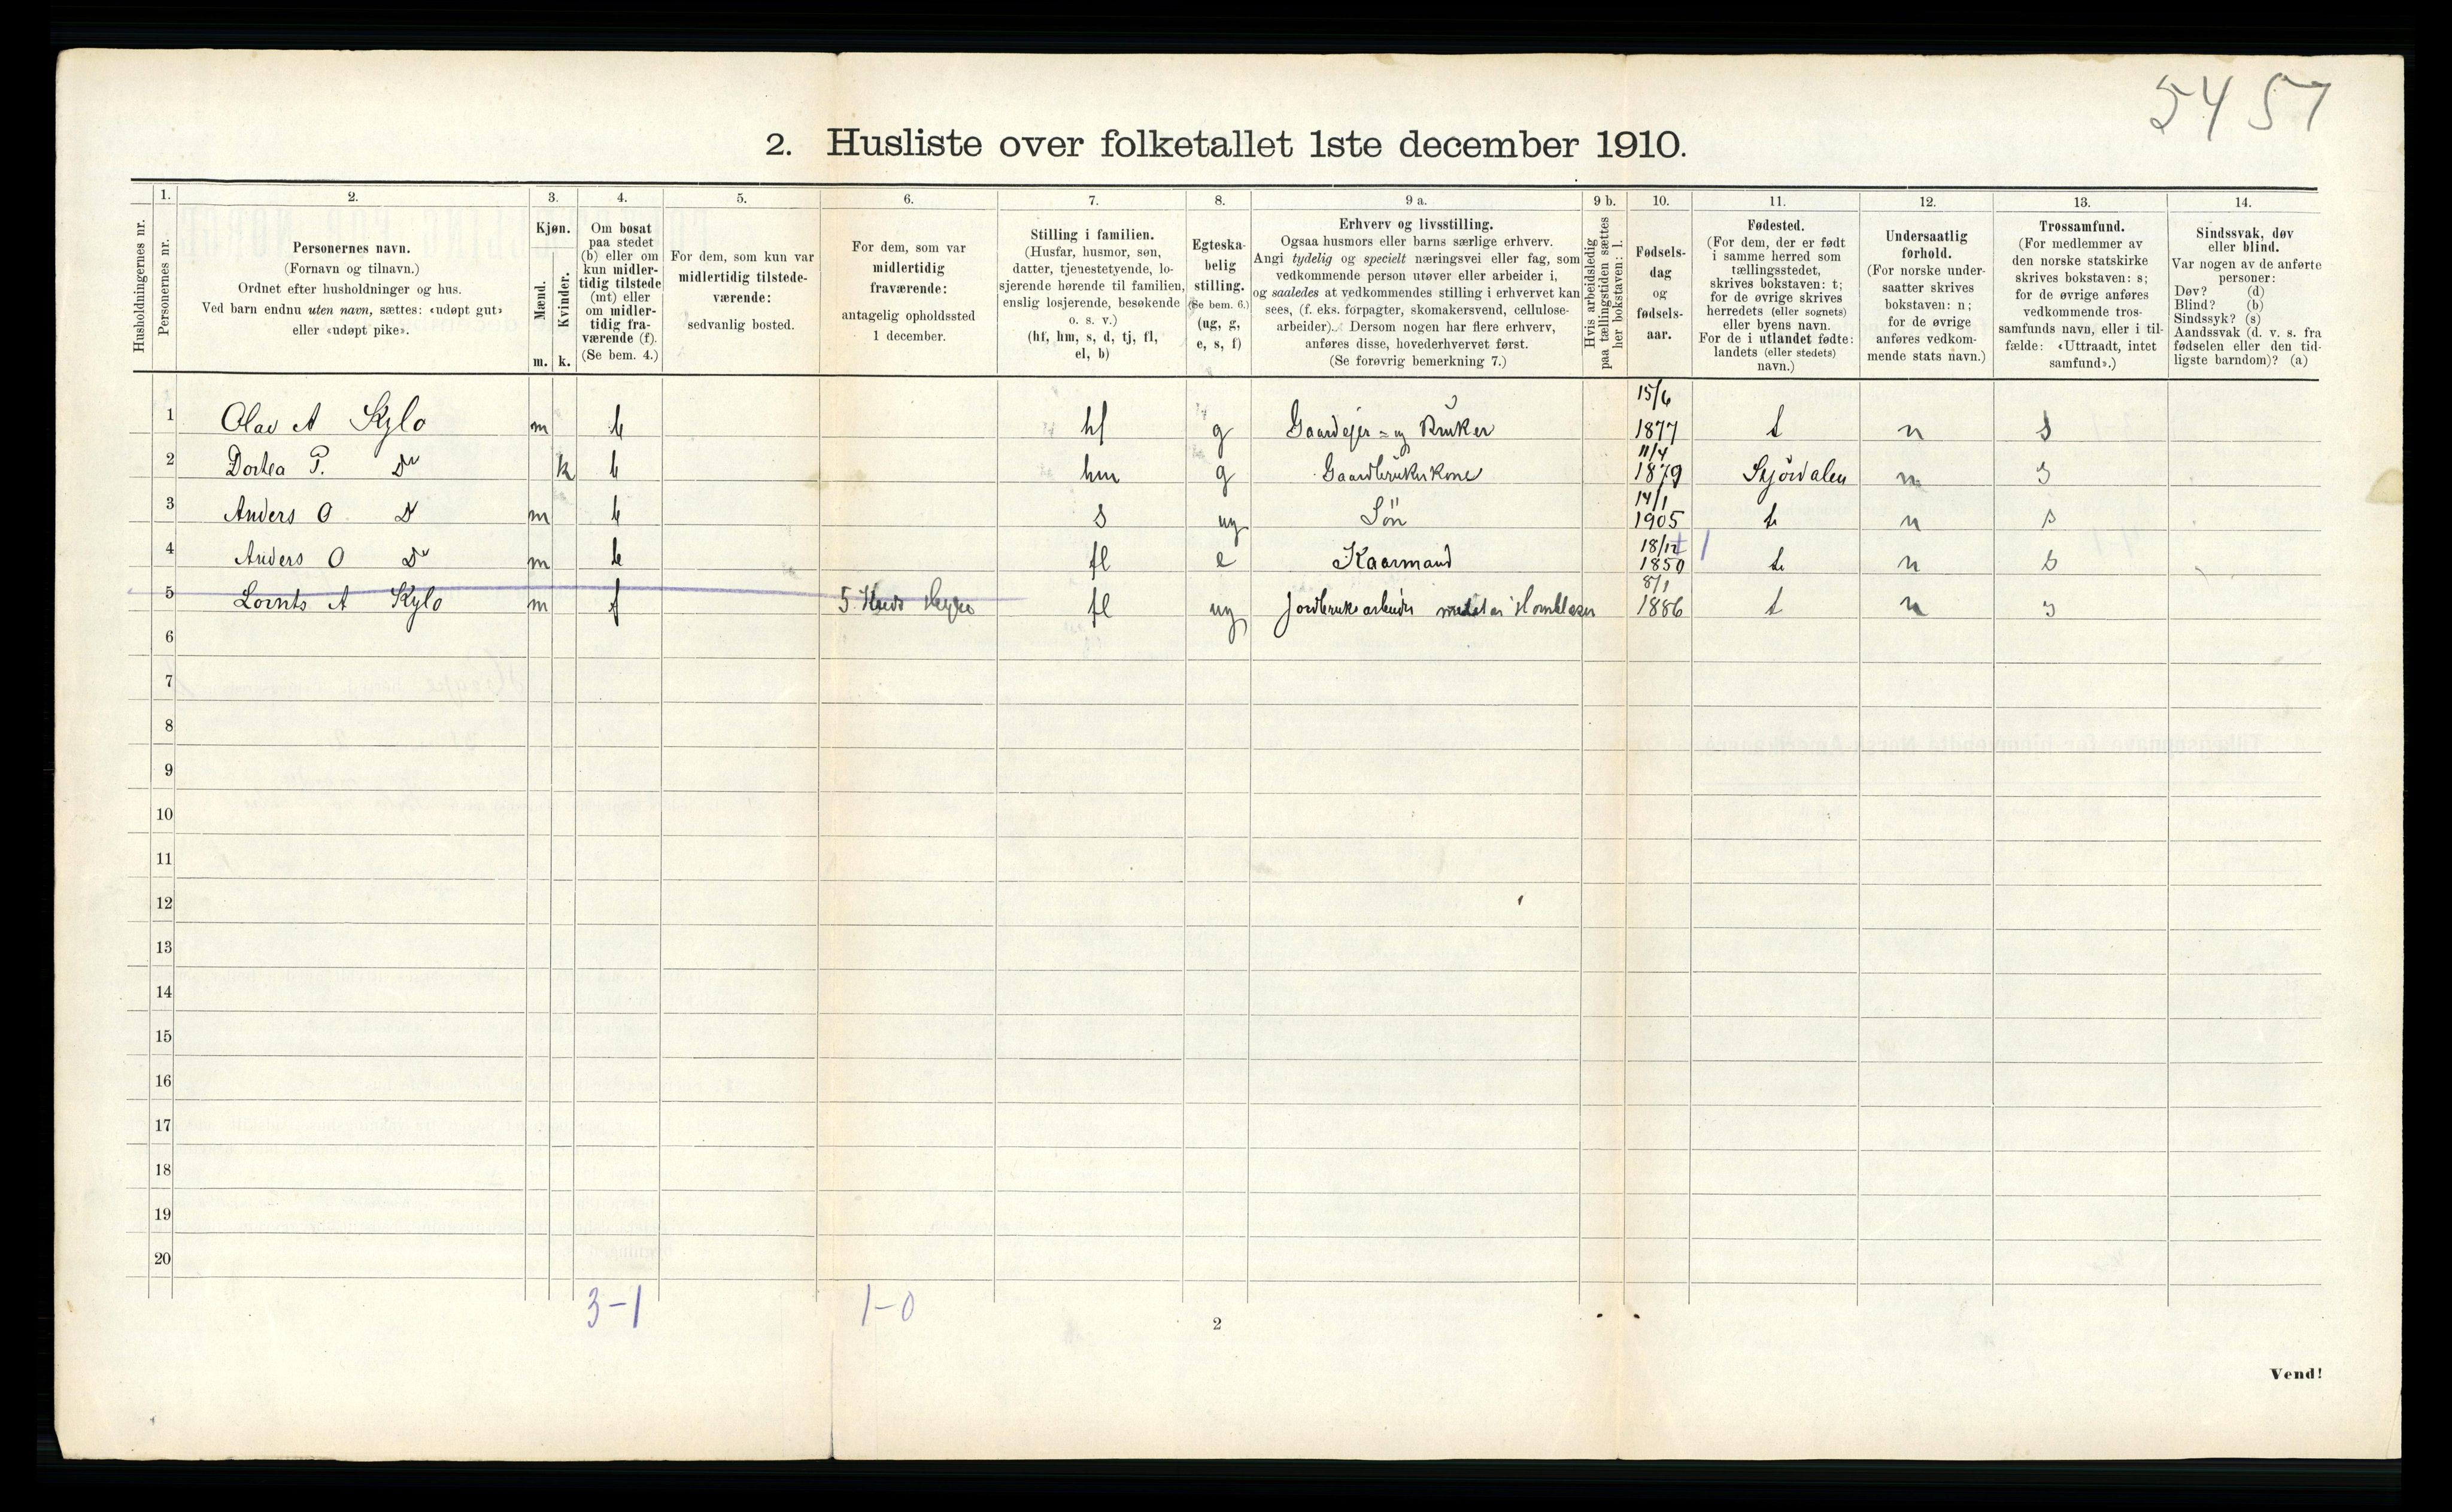 5457
2. Husliste over folketallet 1ste december 1910.
Husholdningernes nr.
1.
Personernes nr.
2.
Personernes navn.
(Fornavn og tilnavn.)
Ordnet efter husholdninger og hus.
Ved barn endnu uten navn, sættes: «udøpt gut»
eller «udøpt pike».
3.
Kjøn.
Mænd.
Kvinder.
m. k.
4.
Om bosat
paa stedet
(b) eller om
kun midler-
tidig tilstede
(mt) eller
om midler-
tidig fra-
værende (f).
(Se bem. 4.)
5.
For dem, som kun var
midlertidig tilstede-
værende:
sedvanlig bosted.
6.
For dem, som var
midlertidig
fraværende:
antagelig opholdssted
1 december.
7.
Stilling i familien.
(Husfar, husmor, søn,
datter, tjenestetyende, lo-
sjerende hørende til familien,
enslig losjerende, besøkende
o. s. v.)
(hf, hm, s, d, tj, fl,
el, b)
8.
Egteska-
belig
stilling.
(Se bem. 6.)
(ug, g,
e, s, f)
9 a.
Erhverv og livsstilling.
Ogsaa husmors eller barns særlige erhverv.
Angi tydelig og specielt næringsvei eller fag, som
vedkommende person utøver eller arbeider i,
og saaledes at vedkommendes stilling i erhvervet kan
sees, (f. eks. forpagter, skomakersvend, cellulose-
arbeider). Dersom nogen har flere erhverv,
anføres disse, hovederhvervet først.
(Se forøvrig bemerkning 7.)
9 b.
Hvis arbeidsledig
paa tællingstiden sættes
her bokstaven: l.
10.
Fødsels-
dag
og
fødsels-
aar.
11.
Fødested.
(For dem, der er født
i samme herred som
tællingsstedet,
skrives bokstaven: t;
for de øvrige skrives
herredets (eller sognets)
eller byens navn.
For de i utlandet fødte:
landets (eller stedets)
navn.)
12.
Undersaatlig
forhold.
(For norske under-
saatter skrives
bokstaven: n;
for de øvrige
anføres vedkom-
mende stats navn.)
13.
Trossamfund.
(For medlemmer av
den norske statskirke
skrives bokstaven: s;
for de øvrige anføres
vedkommende tros-
samfunds navn, eller i til-
fælde: «Uttraadt, intet
samfund».)
14.
Sindssvak, døv
eller blind.
Var nogen av de anførte
personer:
Døv? (d)
Blind? (b)
Sindssyk? (s)
Aandssvak (d. v. s. fra
fødselen eller den tid-
ligste barndom)? (a)
1 Olav A Kylo m b hf g Gaardejer = og Bruker 15/6 1877 t n s
2 Dortea P. Do k b hm g Gaardbrukerkone 11/4 1879 Stjördalen n s
3 Anders O Do m b s ug Sön 14/1 1905 t n s
4 Anders O Do m b fl e Kaarmand 18/12 1850 t n s
5 Lornts A Kylo m f 5. fl ug Jordbruksarbeider Hornblæser 8/1 1886 t n s
6
7
8
9
10
11
12
13
14
15
16
17
18
19
20
3-1 1-0
2
Vend!